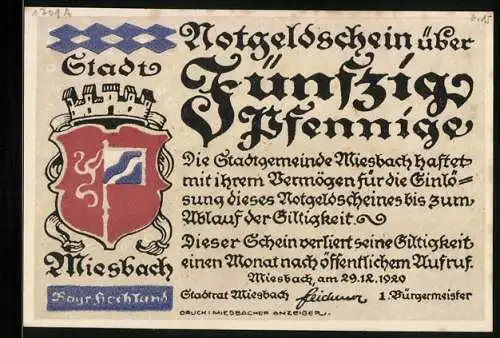 1701A
Stadt
Miesbach
Bayr. Hochland
Notgeldschein über
Fünfzig
Pfennige
Die Stadtgemeinde Miesbach haftet
mit ihrem Vermögen für die Einlö-
sung dieses Notgeldscheines bis zum
Ablauf der Giltigkeit.
Dieser Schein verliert seine Giltigkeit
einen Monat nach öffentlichem Aufruf.
Miesbach, am 29.12.1920
Stadtrat Miesbach 1. Bürgermeister
DRUCK: MIESBACHER ANZEIGER.